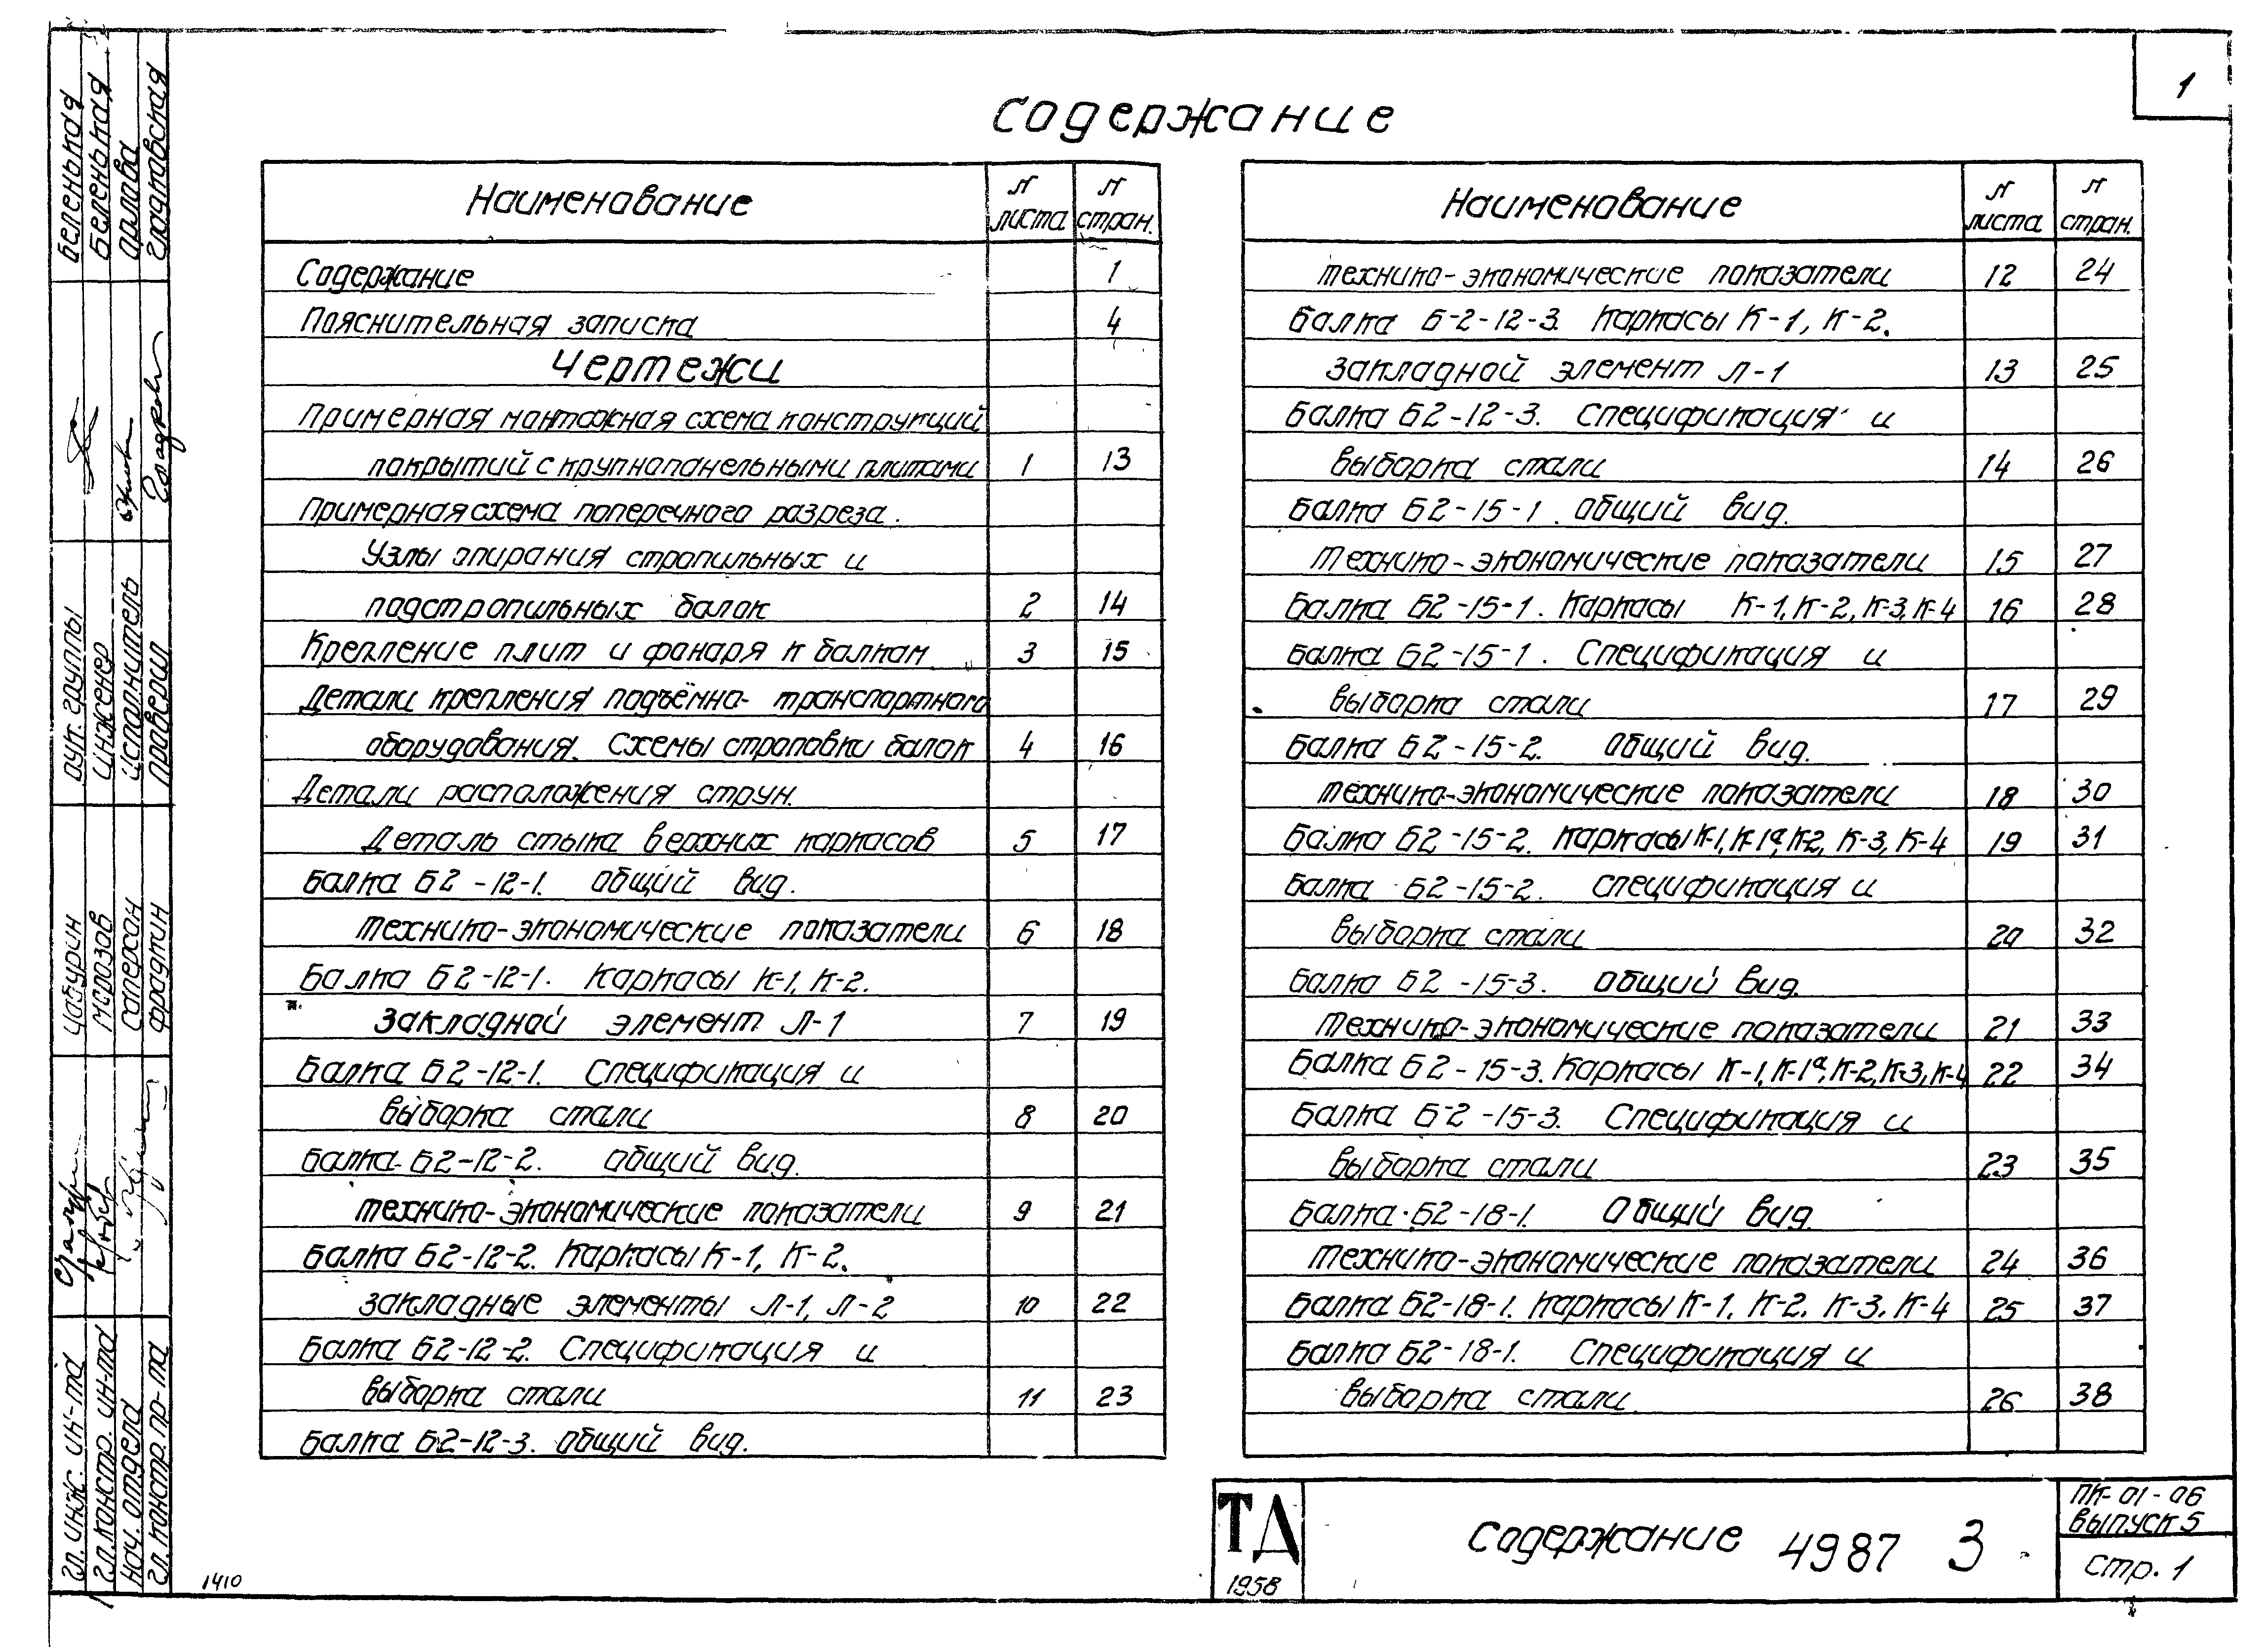 1
Содержание
Наименование
N листа
N стран.
Содержание 1
Пояснительная записка 4
Чертежи
Примерная монтажная схема конструкций
покрытий с крупнопанельными плитами 1 13
Примерная схема поперечного разреза.
Узлы опирания стропильных и
подстропильных балок 2 14
Крепление плит и фонаря к балкам 3 15
Детали крепления подъёмно-транспортного
оборудования. Схемы строповки балок 4 16
Детали расположения струн.
Деталь стыка верхних каркасов 5 17
Балка Б2-12-1. Общий вид.
технико-экономические показатели 6 18
Балка Б2-12-1. Каркасы К-1, К-2.
Закладной элемент Л-1 7 19
Балка Б2-12-1. Спецификация и
выборка стали 8 20
Балка Б2-12-2. Общий вид.
технико-экономические показатели 9 21
Балка Б2-12-2. Каркасы К-1, К-2.
закладные элементы Л-1, Л-2 10 22
Балка Б2-12-2. Спецификация и
выборка стали 11 23
Балка Б2-12-3. Общий вид.
Наименование
N листа
N стран.
технико-экономические показатели 12 24
Балка Б-2-12-3. Каркасы К-1, К-2.
Закладной элемент Л-1 13 25
Балка Б2-12-3. Спецификация и
выборка стали 14 26
Балка Б2-15-1. Общий вид.
технико-экономические показатели 15 27
Балка Б2-15-1. Каркасы К-1, К-2, К-3, К-4 16 28
Балка Б2-15-1. Спецификация и
выборка стали 17 29
Балка Б2-15-2. Общий вид.
технико-экономические показатели 18 30
Балка Б2-15-2. Каркасы К-1, К-1а, К-2, К-3, К-4 19 31
Балка Б2-15-2. Спецификация и
выборка стали 20 32
Балка Б2-15-3. Общий вид.
технико-экономические показатели 21 33
Балка Б2-15-3. Каркасы К-1, К-1а, К-2, К-3, К-4 22 34
Балка Б-2-15-3. Спецификация и
выборка стали 23 35
Балка Б2-18-1. Общий вид.
технико-экономические показатели 24 36
Балка Б2-18-1. Каркасы К-1, К-2, К-3, К-4 25 37
Балка Б2-18-1. Спецификация и
выборка стали. 26 38
ТД
1958
Содержание 4987 3
ПК-01-06
выпуск 5
стр. 1
1410
гл. инж. ин-та
гл. констр. ин-та
нач. отдела
гл. констр. пр-та
Чабурин
Морозов
Саперсон
Фрадкин
рук. группы
инженер
исполнитель
проверил
Беленькая
Беленькая
Орлова
Гладковская